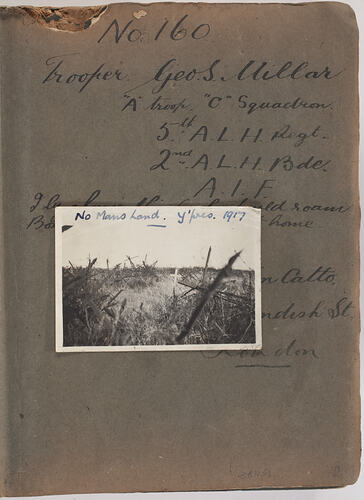 No. 160
Trooper. Geo. S. Millar
"A" troop. "C" Squadron.
5th A. L. H. Regt.
2nd A. L. H. Bde.
A. I. F.
roam
home
No Mans Land. Y'pres. 1917
Catto,
St.
London